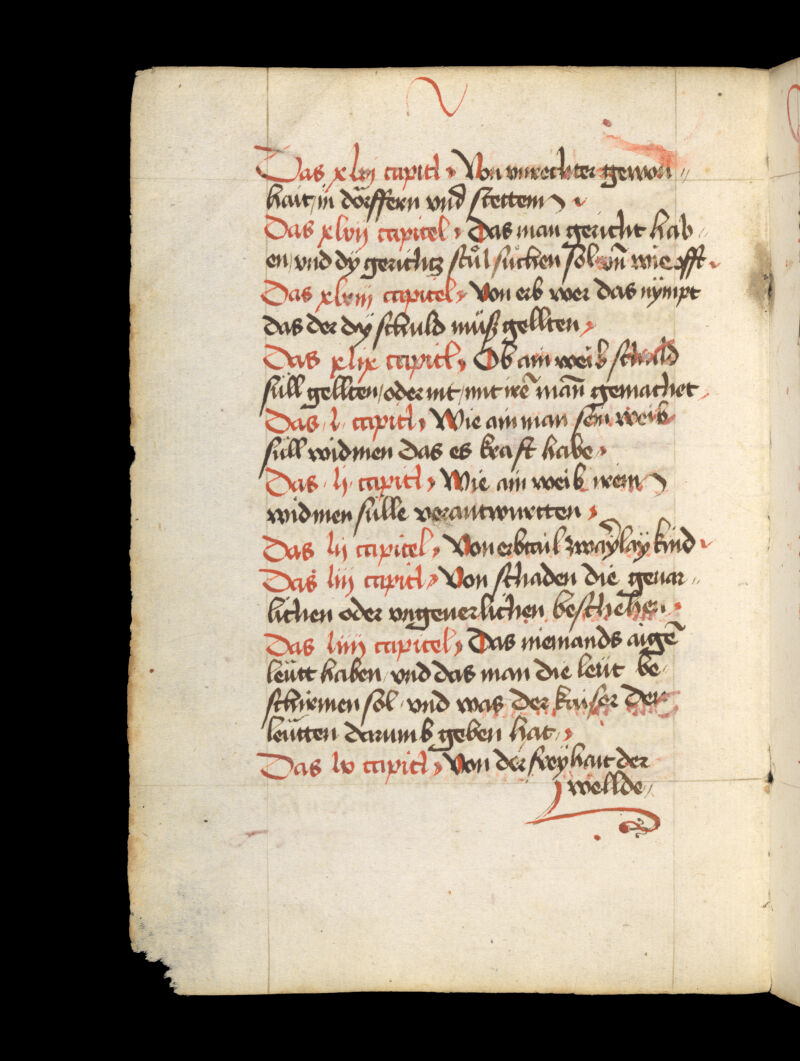 Das xlvj capitl Von vnrechter gewon〃
hait, in dörffern vnd stetten
Das xlvij capitel, Das man gericht hab〃
en, vnd dÿ gerichtz stůl sůchen sol vn̄ wie offt
Das xlviij capitel, Von erb wer das nÿmpt
das der dÿ schuld müß gellten
Das xlix capitl, Ob ain weib schuld
süll gellten, oder nit, mit irē man̄ gemachet
Das · l · capitl, Wie ain man sein weib
süll widmen das es kraft habe
Das · lj · capitl, Wie ain weib irem
widmen sülle verantwurtten
Das lij capitel, Von erbtail zwaÿerlaÿ kind
Das liij capitl, Von schaden die geuar〃
lichen oder vngeuerlichen beschehen
Das liiij capitel, Das niemands aigē
leütt haben, vnd das man die leüt be
schirmen sol, vnd was der kaiser den
leütten darumb geben hat
Das lv capitl, Von der freÿhait der
wellde